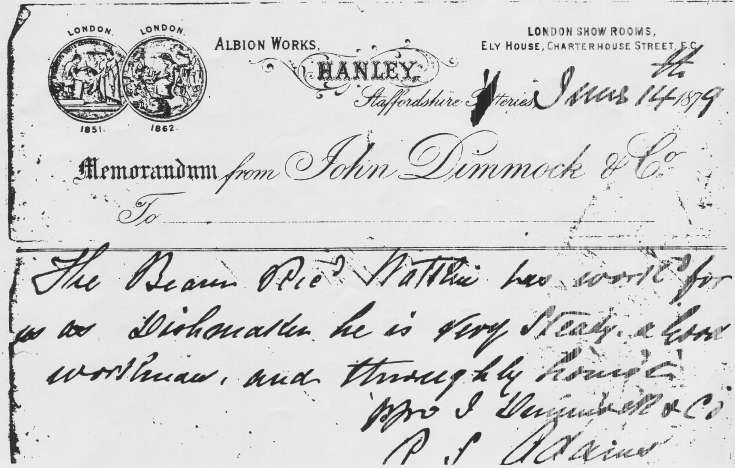 LONDON. LONDON.
1851. 1862.
ALBION WORKS,
HANLEY,
Staffordshire Potteries,
LONDON SHOW ROOMS,
ELY HOUSE, CHARTERHOUSE STREET, E.C.
June 14th 1879
Memorandum from John Dimmock & Co.
To
The Bearer Ricd has workd for
us as Dishmaker he is very Steady. a Good
workman, and throughly honest
ppro J Dimmock & Co
P S Adams